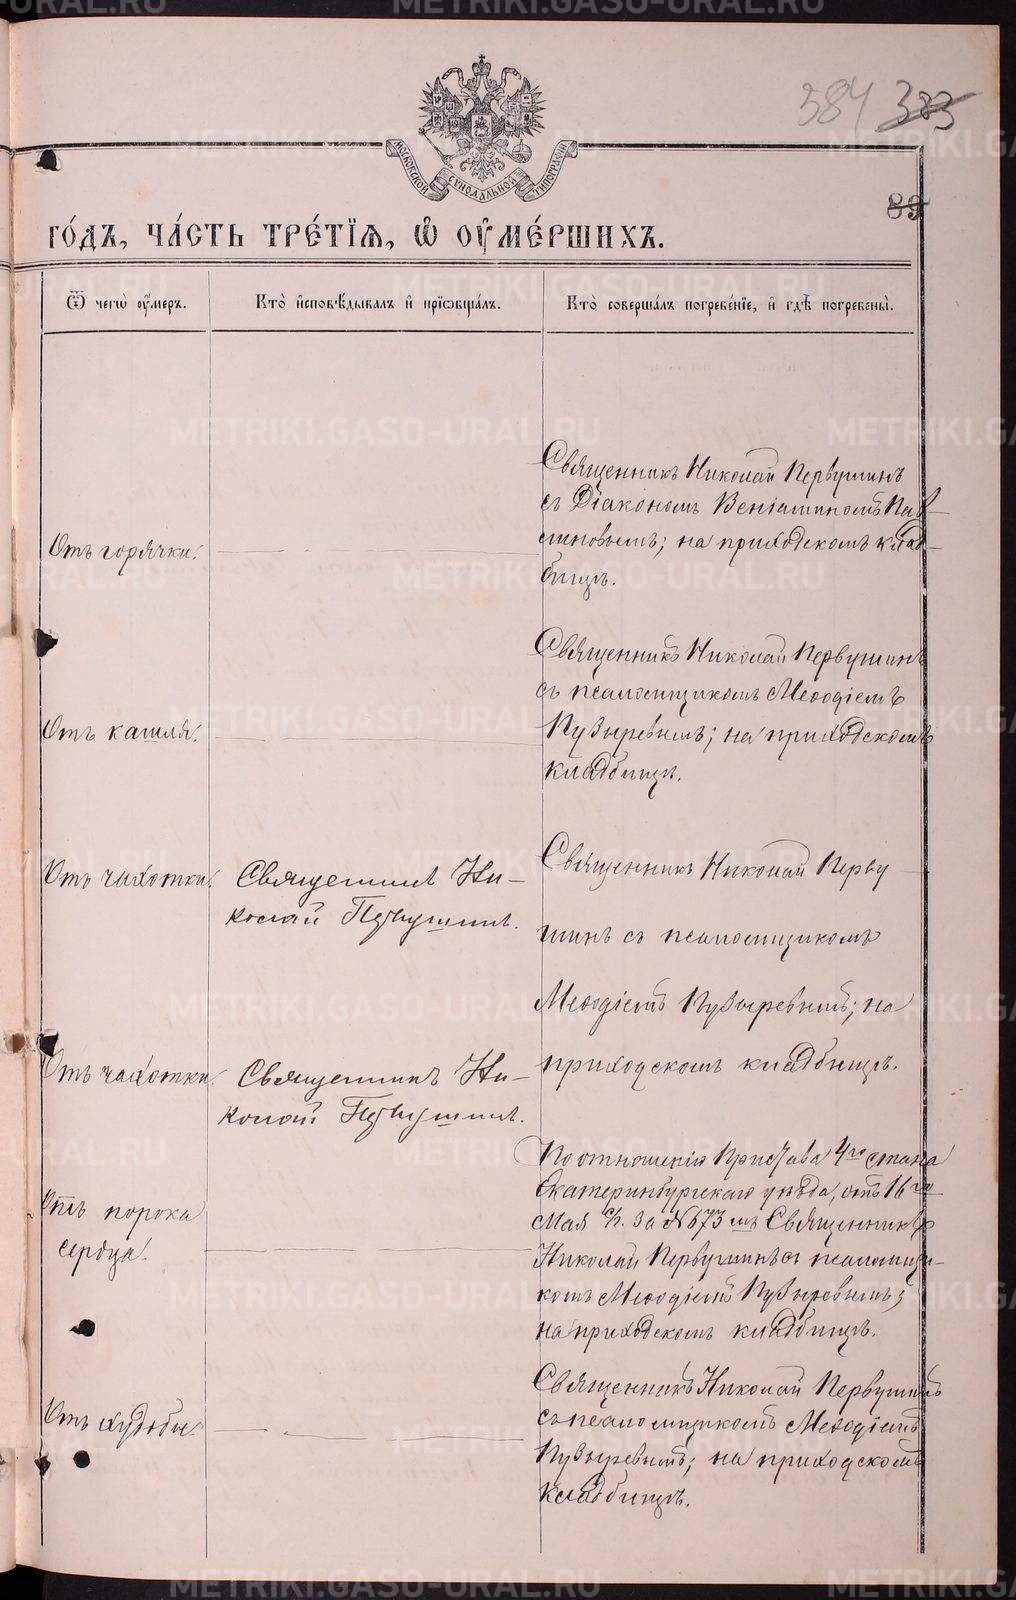 584 383
МОСКОВСКОЙ СѴНОДАЛЬНОЙ ТИПОГРАФІИ
83
го́дъ, ча́сть тре́тїѧ, ѡ҆ оу҆ме́ршихъ.
Ѿ чегѡ̀ оу҆́меръ.
Кто̀ и҆сповѣ́дывалъ и҆ прїѡбща́лъ.
Кто̀ соверша́лъ погребе́нїе, и҆ гдѣ̀ погребены̀.
Отъ горячки.
Священникъ Николай Первушинъ
съ Діакономъ Веніаминомъ Пав-
линовымъ; на приходскомъ клад-
бищѣ.
Отъ кашля.
Священникъ Николай Первушинъ
съ псаломщикомъ Меѳодіемъ
Пузыревымъ; на приходскомъ
кладбищѣ.
Отъ чахотки.
Священникъ Ни-
колай Первушинъ.
Священникъ Николай Перву
шинъ съ псаломщикомъ
Меѳодіемъ Пузыревымъ; на
приходскомъ кладбищѣ.
Отъ чахотки.
Священникъ Ни-
колай Первушинъ.
Отъ порока
сердца.
По отношенію Пристава 4го стана
Екатеринбургскаго уѣзда, отъ 16го
Мая с/г. за № 673 мъ Священникъ
Николай Первушинъ съ псаломщи-
комъ Меѳодіемъ Пузыревымъ;
на приходскомъ кладбищѣ.
Отъ худобы.
Священникъ Николай Первушинъ
съ псаломщикомъ Меѳодіемъ
Пузыревымъ; на приходскомъ
кладбищѣ.
METRIKI.GASO-URAL.RU